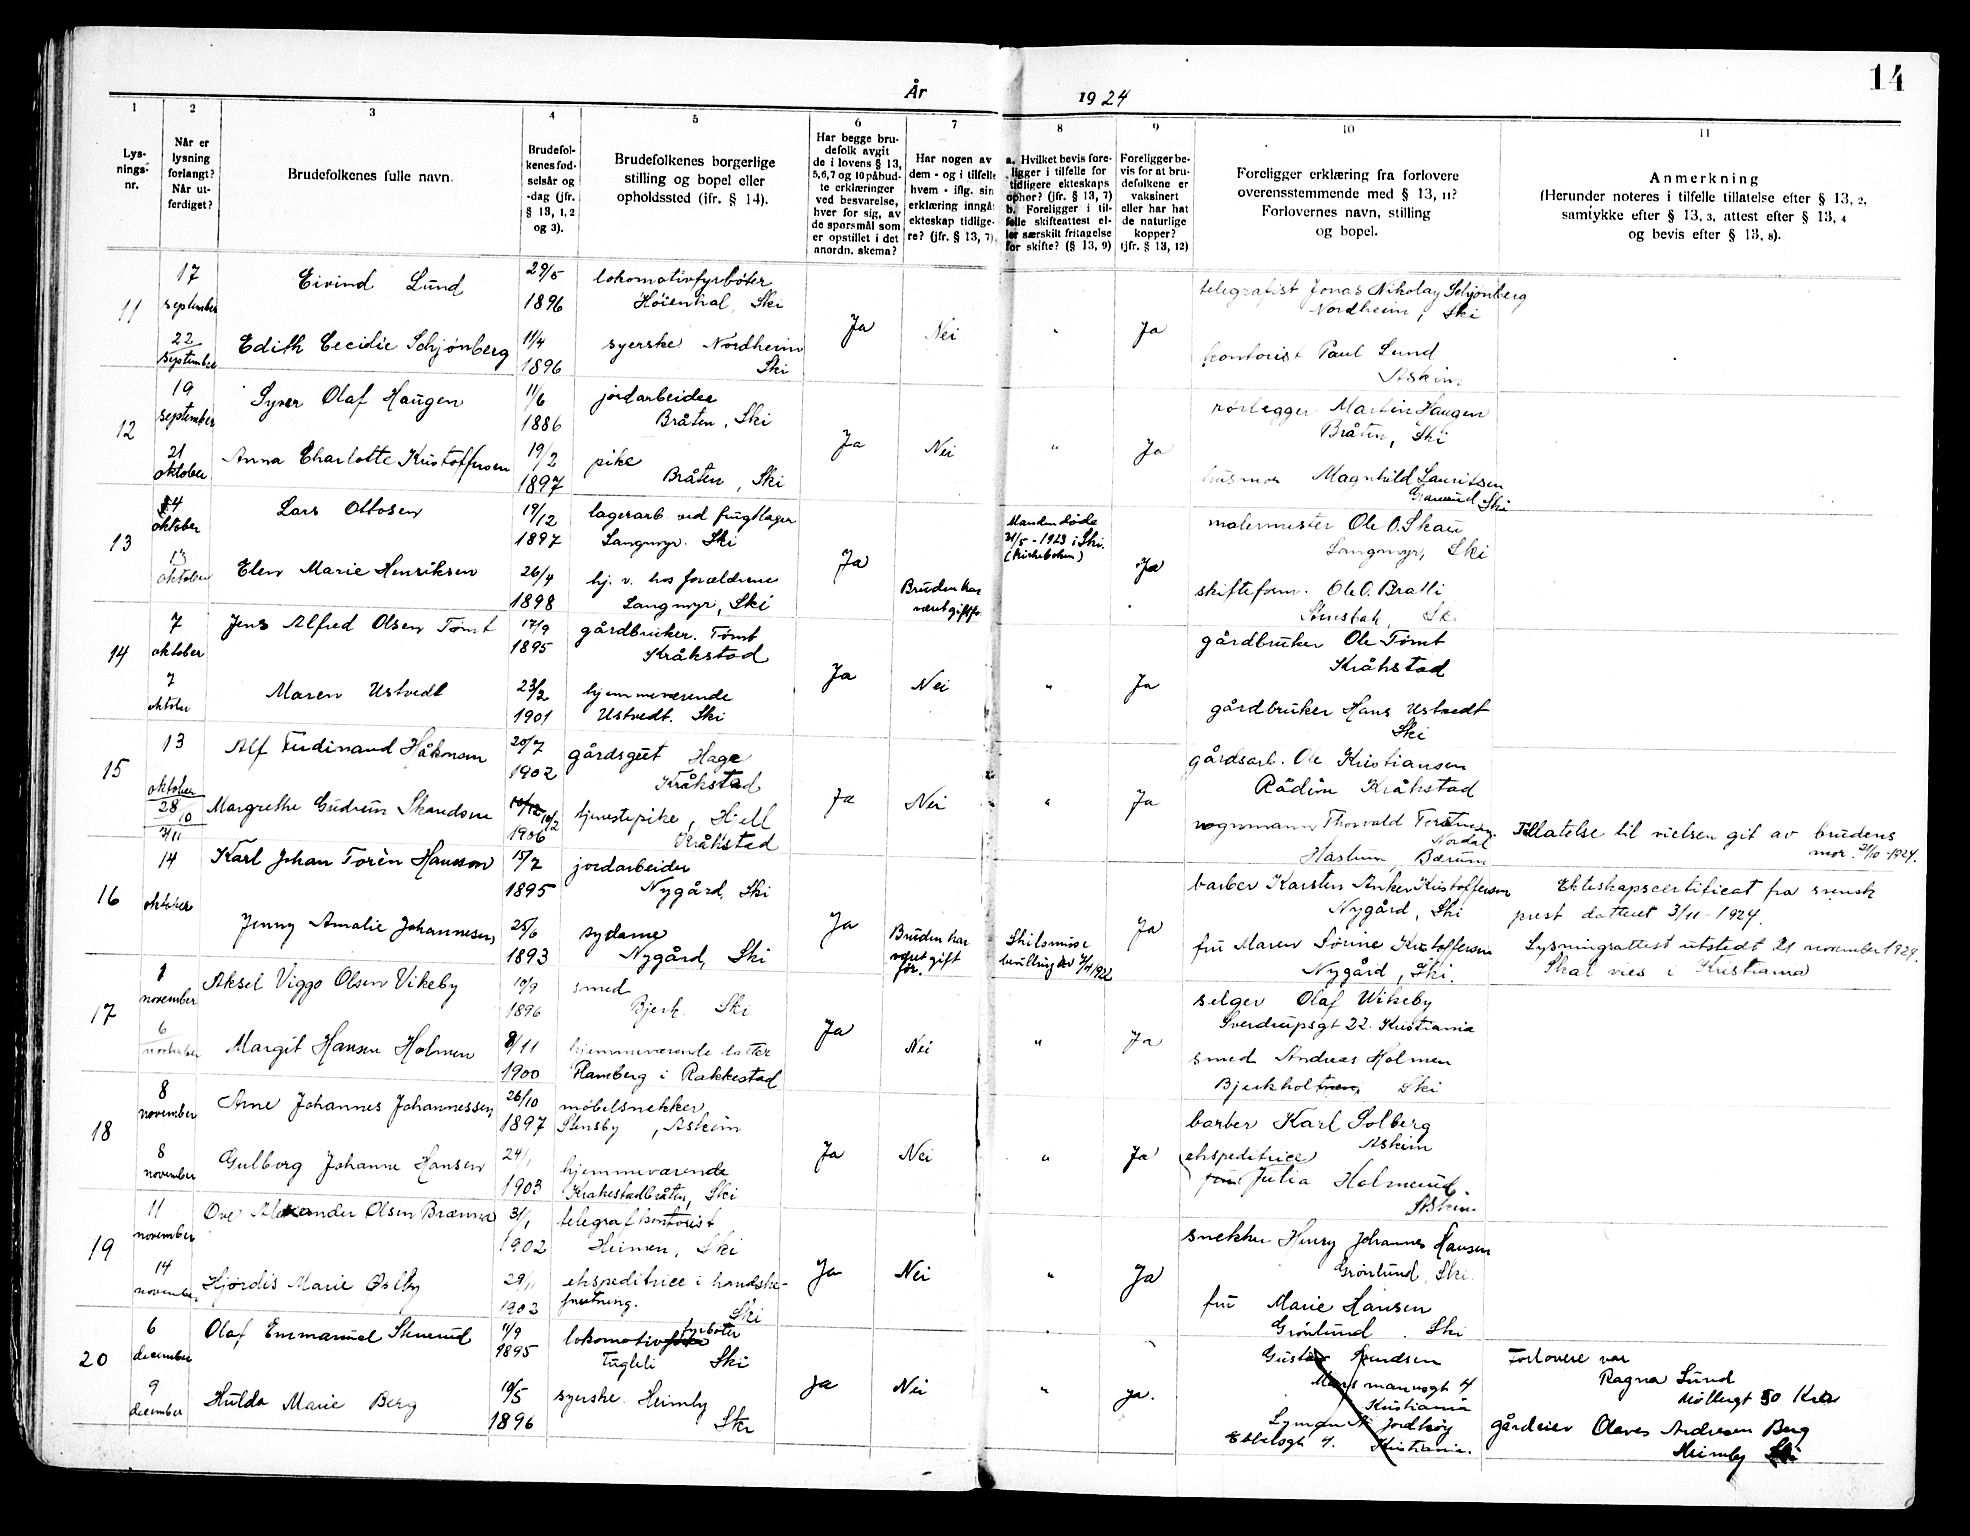 14
År 1924
1 2 3 4 5 6 7 8 9 10 11
Lys-
nings-
nr.
Når er
lysning
forlangt?
Når ut-
ferdiget?
Brudefolkenes fulle navn.
Brudefol-
kenes fød-
selsår og
-dag (jfr.
§ 13, 1, 2
og 3).
Brudefolkenes borgerlige
stilling og bopel eller
opholdssted (jfr. § 14).
Har begge bru-
defolk avgit
de i lovens § 13,
5,6,7 og 10 påbud-
te erklæringer
ved besvarelse,
hver for sig, av
de spørsmål som
er opstillet i det
anordn. skema?
Har nogen av
dem - og i tilfelle
hvem - iflg. sin
erklæring inngåt
ekteskap tidlige-
re? (jfr. § 13, 7).
a. Hvilket bevis fore-
ligger i tilfelle for
tidligere ekteskaps
ophør? (jfr. § 13, 7)
b. Foreligger i til-
felle skifteattest el-
ler særskilt fritagelse
for skifte? (§ 13, 9)
Foreligger be-
vis for at bru-
defolkene er
vaksinert
eller har hat
de naturlige
kopper?
(jfr. § 13, 12)
Foreligger erklæring fra forlovere
overensstemmende med § 13, 11?
Forlovernes navn, stilling
og bopel.
Anmerkning
(Herunder noteres i tilfelle tillatelse efter § 13, 2,
samtykke efter § 13, 3, attest efter § 13, 4
og bevis efter § 13, 8).
11
17
september
Eivind Lund
29/5
1896
lokomotivfyrbøter
Høienhal, Ski
telegrafist Jonas Nikolay Schjønberg
Nordheim, Ski
22
september
Edith Cecilie Schjønberg
11/4
1896
syerske Nordheim
Ski
Ja Nei " Ja
kontorist Paul Lund
Askim
12
19
september
Syver Olaf Haugen
11/6
1886
jordarbeider
Bråten, Ski
rørlegger Martin Haugen
Bråten, Ski
21
oktober
Anna Charlotte Kristoffersen
19/2
1897
pike
Bråten, Ski
Ja Nei " Ja
husmor Magnhild Lauritsen
Ski
13
4
oktober
Lars Ottosen
19/12
1897
lagerarb. ved frugtlager
Langmyr. Ski
Manden døde
21/5 - 1923 i Ski.
(kirkeboken)
malermester Ole O. Skau
Langmyr, Ski
13
oktober
Elen Marie Henriksen
26/4
1898
hj. v. hos forældrene
Langmyr, Ski
Ja
Bruden har
været gift før
Ja
skifteform. Ole O. Bratli
Ski
14
7
oktober
Jens Alfred Olsen Tømt
17/9
1895
gårdbruker. Tømt
Kråkstad
gårdbruker Ole Tømt
Kråkstad
7
oktober
Maren Ustvedt
23/2
1901
hjemmeværende
Ustvedt. Ski
Ja Nei " Ja
gårdbruker Hans Ustvedt
Ski
15
13
oktober
Alf Ferdinand Håkonsen
20/7
1902
gårdsgut Hage
Kråkstad
gårdsarb. Ole Kristiansen
Rådim Kråkstad
28/10
Margrethe Gudrun Skaudsen
10/2
1906
tjenestepike, Hjell
Kråkstad
Ja Nei " Ja
vognmann Thorvald
Haslum Bærum
Tillatelse til vielsen git av brudens
mor. 21/10-1924.
16
14
oktober
Karl Johan Torèn Hansson
15/7
1895
jordarbeider
Nygård, Ski
barber Karsten Anker Kristoffersen
Nygård, Ski
Ekteskapscertificat fra svensk
prest datteret 3/11 - 1924.
Jenny Amalie Johannesen
25/6
1893
sydame
Nygård, Ski
Ja
Bruden har
været gift
før.
Skilsmisse
bevilling
Ja
fru Maren Sørine Kristoffersen
Nygård, Ski.
Lysningsattest utstedt 21 november 1924.
Skal vies i Kristiania
17
1
november
Aksel Viggo Olsen Vikeby
10/9
1896
smed
Bjerk. Ski
selger Olaf Wikeby
Sverdrupsgt 22. Kristiania
6
november
Margit Hansen Holmen
8/11
1900
hjemmeværende datter
Flamberg i Rakkestad
Ja Nei " Ja
smed Andreas Holmen
Ski
18
8
november
Arne Johannes Johannessen
26/10
1897
møbelsnekker
Stensby, Askim
barber Karl Solberg
Askim
8
november
Gulborg Johanne Hansen
24/1
1903
hjemmeværende
Krakestadbråten, Ski
Ja Nei " Ja
ekspeditrice
Julia Holmerud,
Askim.
19
11
november
Ove Alexander Olsen Brænna
31/1
1902
telegrafkontorist
Heimen, Ski
snekker Henry Johannes Hansen
Grønlund, Ski.
14
november
Hjørdis Marie Østby
29/1
1903
ekspeditrice i handske-
forretning.
Ski
Ja Nei " Ja
fru Marie Hansen
Grønlund. Ski
20
6
december
Olaf Emmanuel Stenerud
11/9
1895
lokomotivfyrbøter
Fugleli Ski
Gustav
Kristiania
Forlovere var
Ragna Lund
Møllergt 50 Kra
9
december
Hulda Marie Berg
10/5
1896
syerske. Heimly
Ski
Ja Nei " Ja.
Ebbelsgt 4. Kristiania.
gårdeier Olaves Andresen Berg
Heimly Ski